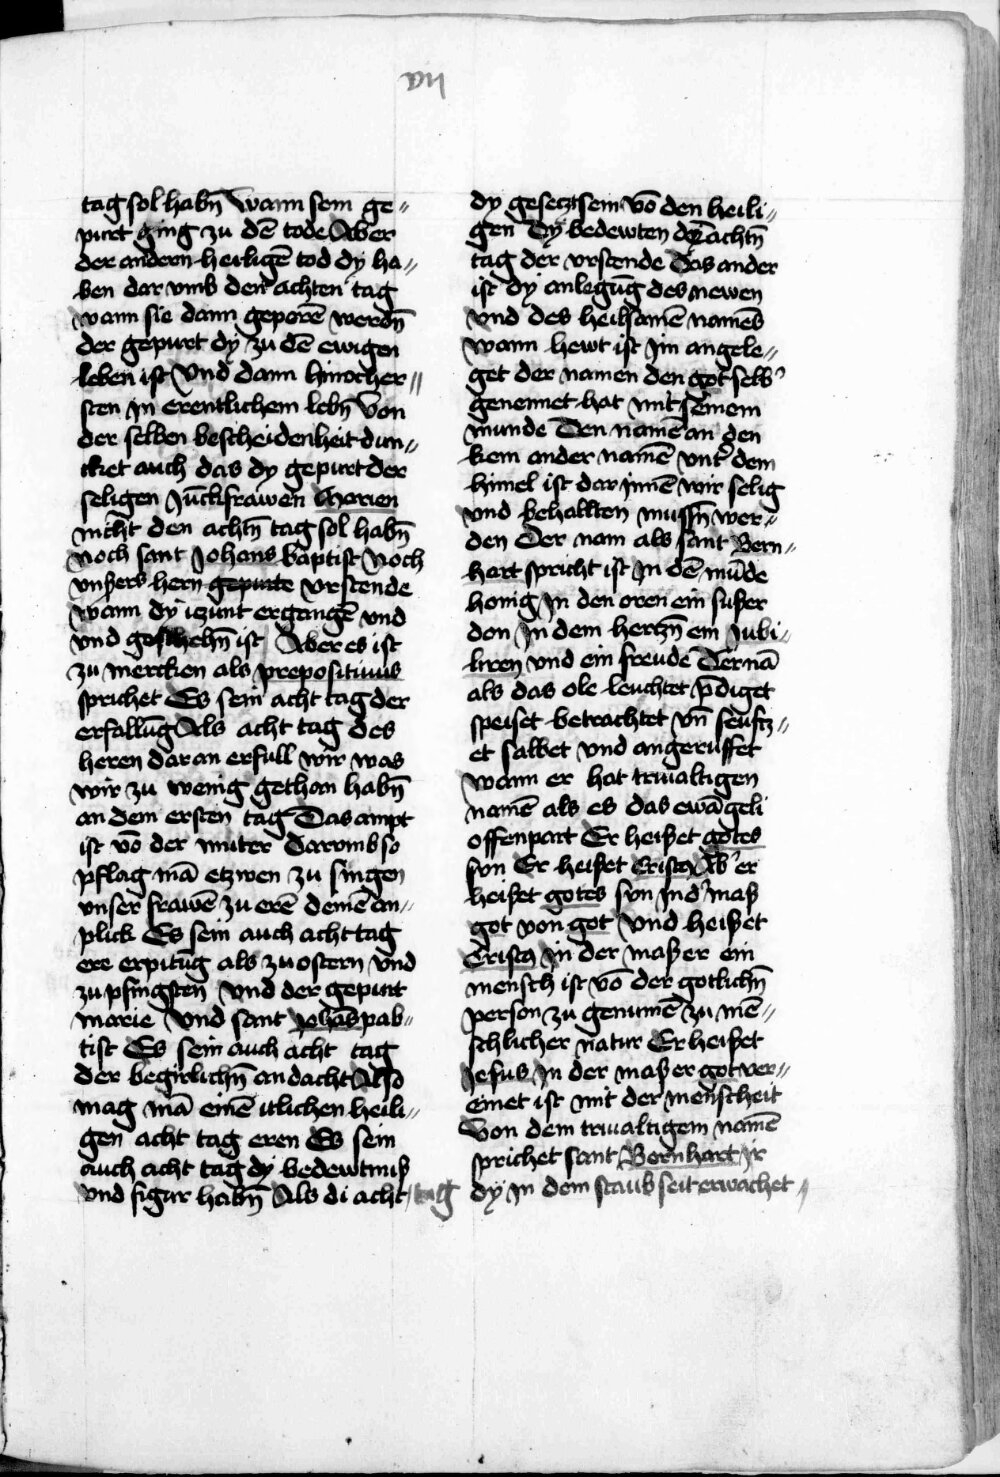 tag sol habn̄ Wann sein ge〃
purt ging zu dē tode Aber
der andern heiligē tod dy ha〃
ben dar vmb den achten tag
wann sie dann geporē werdn̄
der gepurt dy zu dē ewigen
leben ist Vnd dann hinocher〃
sten in erentlichem lebn̄ Von
der selben bescheidenheit dun〃
cket auch das dy gepurt der
seligen Jūckfrawen Marien
nicht den achtn̄ tag sol habn̄
noch sant Johans baptist Noch
vnsers hern gepurte vrstende
wann dy iczunt ergangē vnd
vnd geschehn̄ ist Aber es ist
zu mercken als prepositiuus
sprichet Es sein acht tag der
erfallūg Als acht tag des
heren daran erfull wir was
wir zu wenig gethan habn̄
an dem ersten tag Das ampt
ist vō der muter Darvmb so
pflag mā etzwen zu singen
vnser frawē zu erē deinē an〃
plick Es sein auch acht tag
ere erpitūg als zu ostern vnd
zu pfingsten Vnd der gepurt
marie Vnd sant Johās pab〃
tist Es sein auch acht tag
der begirlichn̄ andacht Also
mag mā einē itlichen heili〃
gen acht tag eren Es sein
auch acht tag dy bedewtniß
vnd figur habn̄ Als di acht tag
dy gesetzt sein vō den heili〃
gen Dy bedewten den achtn̄
tag der vrstende Das ander
ist dy anlegūg des newen
vnd des heilsamē namēs
wann hewt ist Im angele〃
get der namen den got selbˀ
genennet hat mit seinem
munde Den namē an den
kein ander namē vntˀ dem
himel ist dar Innē wir selig
vnd behallten mussn̄ wer〃
den Der nam als sant Bern〃
hart spricht ist In dē mūde
honig In den oren ein sußer
don In dem hertzn̄ ein Jubi〃
liren vnd ein freude Der nā
als das ole leuchtet p̄diget
speiset betrachtet vn̄ seuftz〃
et salbet vnd angeruffet
wann er hat triualtigen
namē als es das ewāgeli
offenpart Er heißet gotes
sun Er heißet Cristꝯ Abˀ er
heißet gotes sun Ind maß
got von got Vnd heißet
Cristꝯ In der maß er ein
mensch ist vō der gotlichn̄
person zu genumē zu mē〃
schlicher natur Er heißet
Jesus In der maß er got ver〃
einet ist mit der menscheit
Von dem triualtigem namē
sprichet sant Bernhart Ir
dy In dem staub seit erwachet